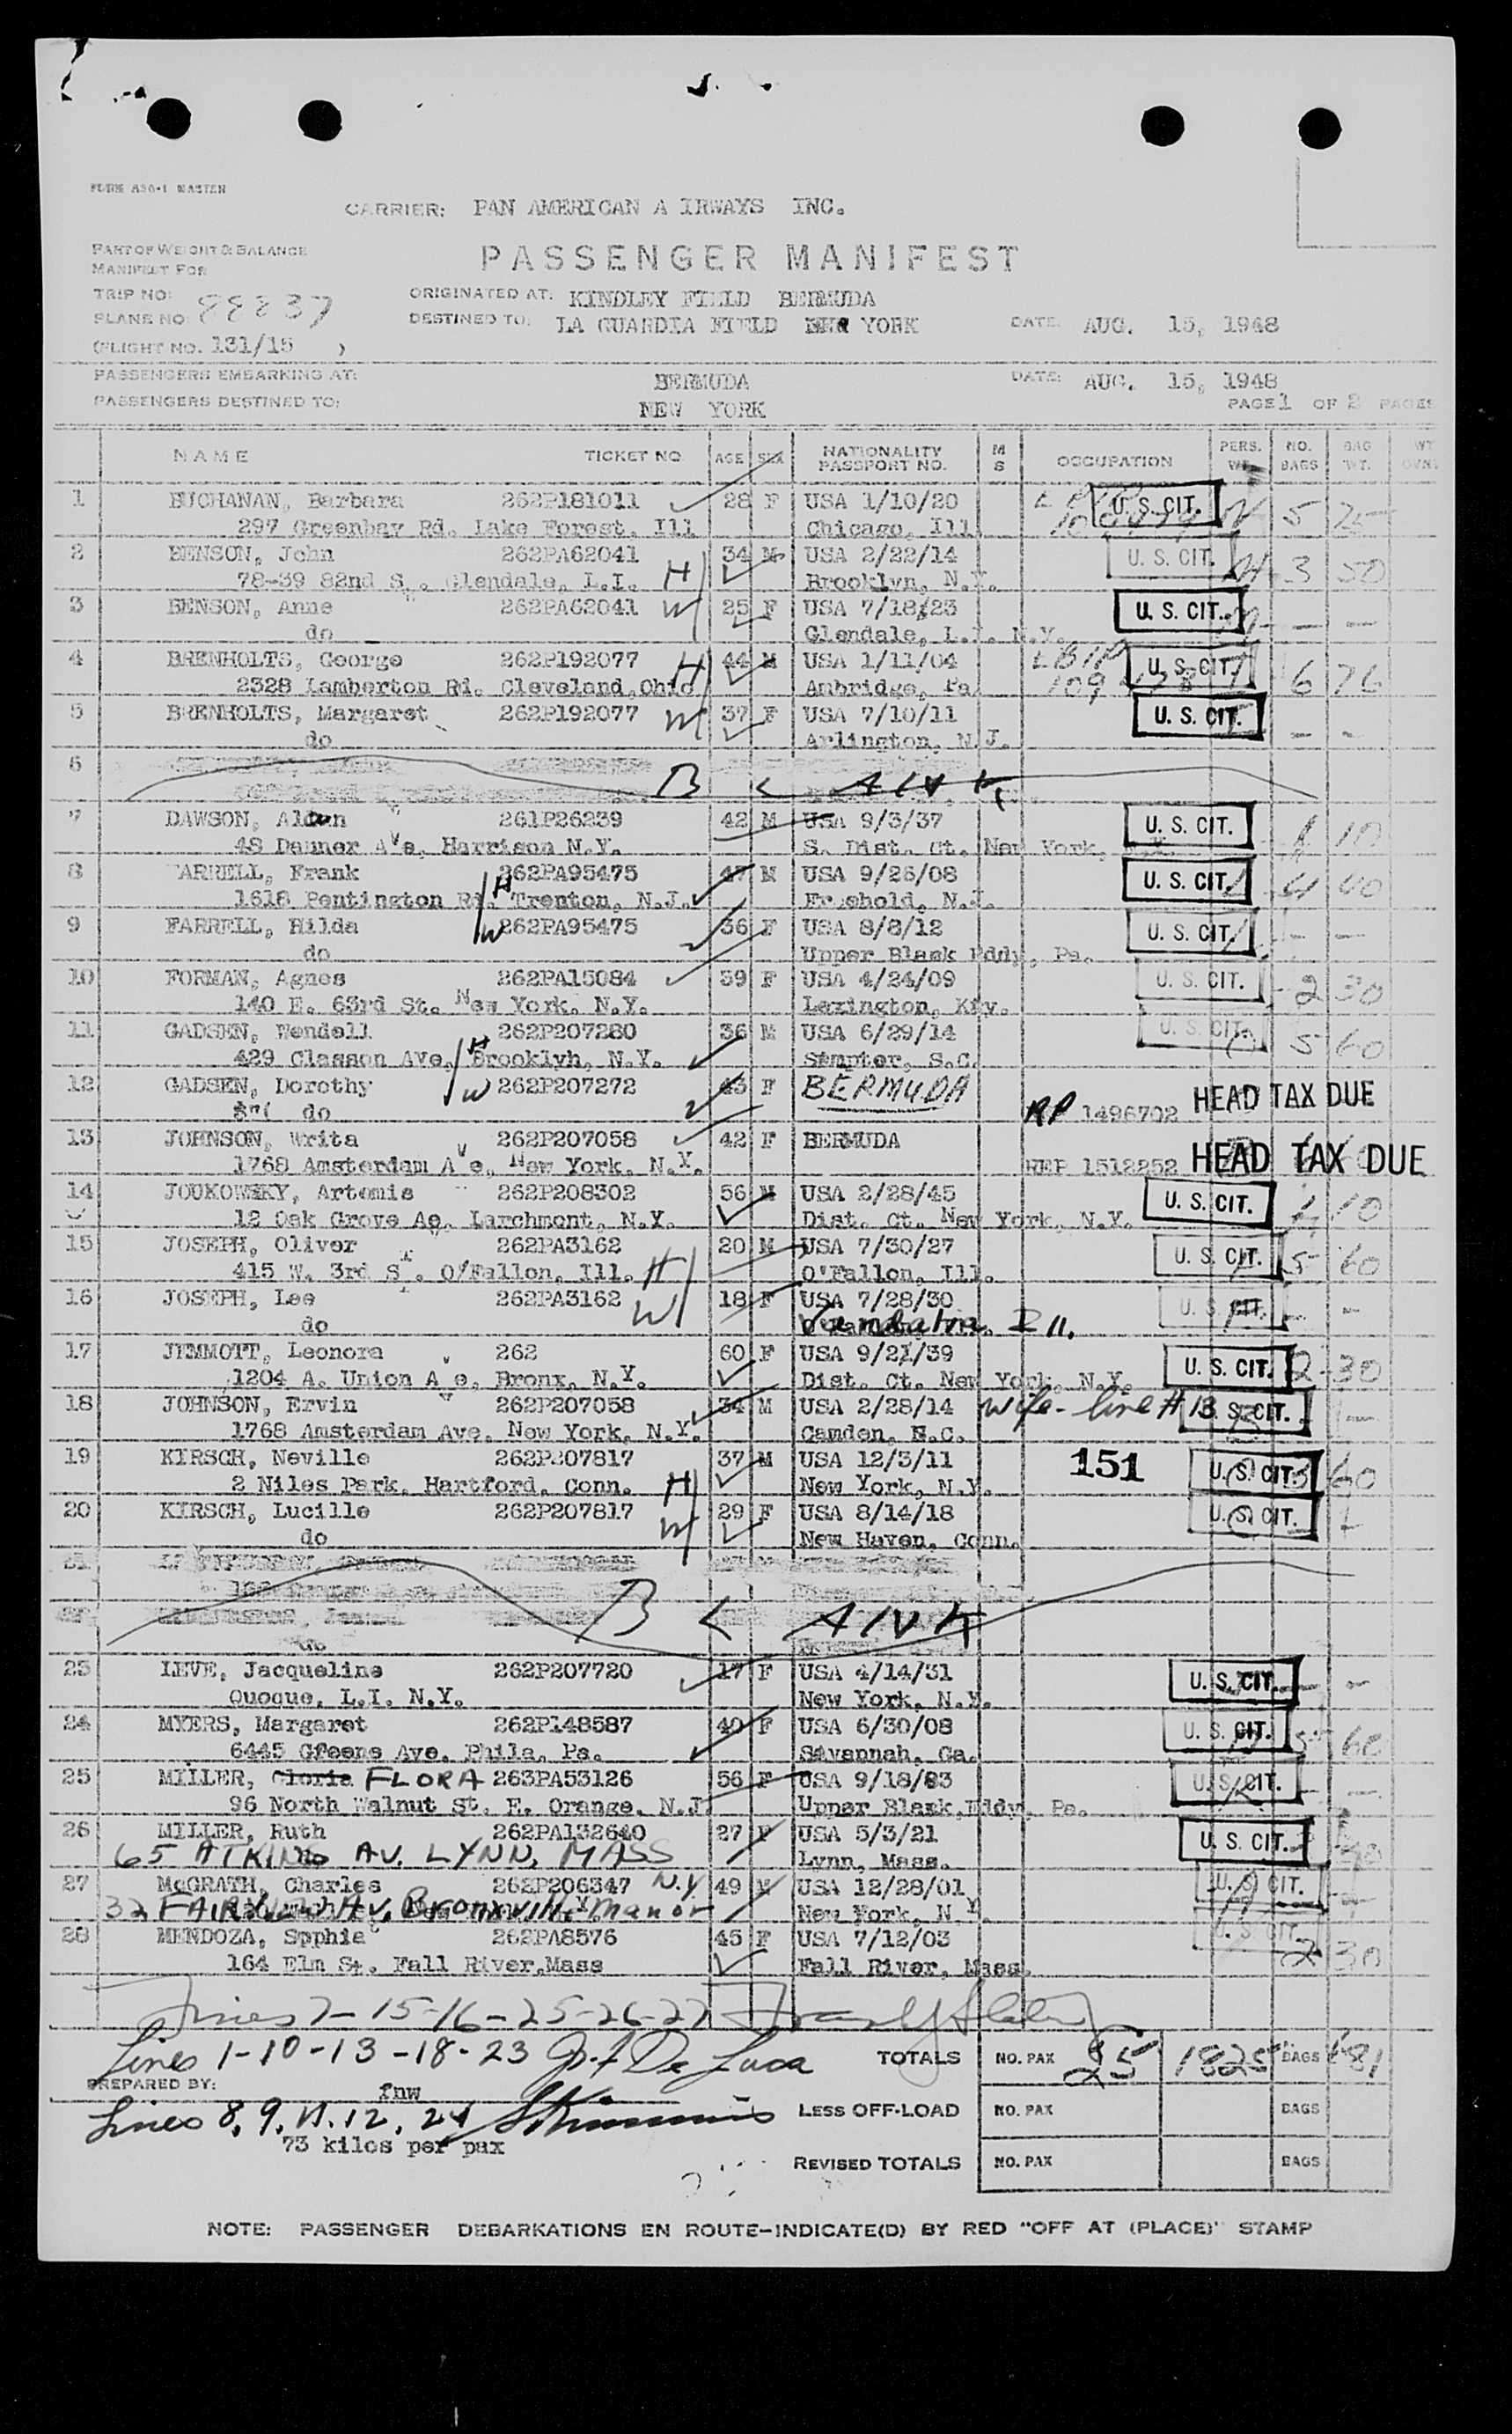 FORM A50-1 MASTER
CARRIER: PAN AMERICAN A IRWAYS INC.
PART OF WEIGHT & BALANCE
MANIFEST FOR
PASSENGER MANIFEST
TRIP NO:
PLANE NO 88837
ORIGINATED AT: KINDLEY FIELD BERMUDA
DESTINED TO: LA GUARDIA FIELD NEW YORK DATE: AUG. 15, 1948
(FLIGHT NO. 131/15 )
PASSENGERS EMBARKING AT: BERMUDA DATE: AUG. 15, 1948
PASSENGERS DESTINED TO: NEW YORK PAGE 1 OF 2 PAGES
NAME TICKET NO AGE SEX NATIONALITY PASSPORT NO. M S OCCUPATION PERS. WT. NO. BAGS BAG WT. WT
1 BUCHANAN, Barbara 262P181011 28 F USA 1/10/20 U. S. CIT. 5 75
297 Greenbay Rd. Lake Forest. Ill Chicago, Ill
2 BENSON, John 262PA62041 34 M USA 2/22/14 U. S. CIT. 3 50
78-39 82nd S . Glendale, L.I. H Brooklyn, N.Y.
3 BENSON, Anne 262PA62041 W 25 F USA 7/18/23 U. S. CIT. — —
do Glendale, L.I. N.Y.
4 BRENHOLTS, George 262P192077 H 44 M USA 1/11/04 U. S. CIT. 6 76
2328 Lamberton Rd. Cleveland,Ohio Ambridge, Pa
5 BRENHOLTS, Margaret 262P192077 W 37 F USA 7/10/11 U. S. CIT. - -
do Arlington, N.J.
6 BLANK
7 DAWSON, Alden 261P26239 42 M USA 9/3/37 U. S. CIT. 1 10
48 Danner Ave, Harrison N.Y. S. Dist. Ct. New York,
8 ARRELL, Frank 262PA95475 47 M USA 9/26/08 U. S. CIT. 4 40
1618 Pentington Rd. H Trenton, N.J. Freehold, N.J.
9 FARRELL, Hilda W 262PA95475 36 F USA 8/8/12 U. S. CIT. - —
do Upper Blask Eddy, Pa.
10 FORMAN, Agnes 262PA15084 39 F USA 4/24/09 U. S. CIT. 2 30
140 E. 63rd St. New York. N.Y. Lexington, Kty.
11 GADSEN, Wendell 262P207280 36 M USA 6/29/14 U. S. CIT. 5 60
429 Classon AVe. H Brooklyh, N.Y. Sumpter, S.C.
12 GADSEN, Dorothy W 262P207272 43 F BERMUDA
do RP 1496702 HEAD TAX DUE
13 JOHNSON, Writa 262P207058 42 F BERMUDA
1768 Amsterdam Ave, New York. N.Y. REP 1512252 HEAD TAX DUE
14 JOUKOWSKY, Artemis 262P208302 56 M USA 2/28/45 U. S. CIT. 1 10
12 Oak Grove Ae. Larchmont, N.Y. Dist. Ct. New York, N.Y.
15 JOSEPH, Oliver 262PA3162 20 M USA 7/30/27 U. S. CIT. 5 60
415 W. 3rd St. O'Fallon, Ill. H O'Fallon, Ill.
16 JOSEPH, Lee 262PA3162 W 18 F USA 7/28/30 U. S. CIT. - -
do Vandalia Ill.
17 JEMMOTT, Leonora 262 60 F USA 9/21/39 U. S. CIT. 2 30
1204 A. Union A e. Bronx, N.Y. Dist. Ct. New York, N.Y.
18 JOHNSON, Ervin 262P207058 34 M USA 2/28/14 wife - line # 13 U. S. CIT. —
1768 Amsterdam Ave. New York, N.Y. Camden, N.C.
19 KIRSCH, Neville 262P207817 37 M USA 12/3/11 151 U. S. CIT. 3 60
2 Niles Park. Hartford. Conn. H New York, N.Y.
20 KIRSCH, Lucille 262P207817 W 29 F USA 8/14/18 U. S. CIT.
do New Haven, Conn.
21
BLANK
do
23 LEVE, Jacqueline 262P207720 17 F USA 4/14/31 U. S. CIT. — -
Quoque, L.I. N.Y. New York, N.Y.
24 MYERS, Margaret 262P148587 40 F USA 6/30/08 U. S. CIT. 5 60
6445 Greene Ave. Phila. Pa. Savannah, Ga.
25 MILLER, Gloria FLORA 263PA53126 56 F USA 9/18/83 U. S. CIT. - —
96 North Walnut St. E. Orange. N.J. Upper Blask,Eddy, Pa.
26 MILLER, Ruth 262PA132640 27 F USA 5/3/21 U. S. CIT.
65 ATKINS AV. LYNN, MASS Lynn, Mass.
27 McGRATH, Charles 262P206347 N.Y 49 M USA 12/28/01 U. S. CIT.
32 FAIRVIEW AV, Bronxville Manor New York, N.Y.
28 MENDOZA, Spphie 262PA8576 45 F USA 7/12/03 U. S. CIT. 2 30
164 Elm St. Fall River,Mass Fall River, Mass.
Lines 7-15-16-25-26-27
Lines 1-10-13-18-23 J. F De Luca TOTALS NO. PAX 25 1825 BAGS 681
PREPARED BY: fnw
Lines 8, 9, 11, 12, 24 LESS OFF-LOAD NO. PAX BAGS
73 kilos per pax
REVISED TOTALS NO. PAX BAGS
NOTE: PASSENGER DEBARKATIONS EN ROUTE-INDICATE(D) BY RED "OFF AT (PLACE)" STAMP